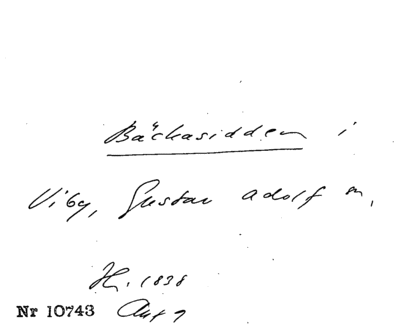 Bäckasidden i
Viby, Gustav Adolf
H. 1838
Nr 10743